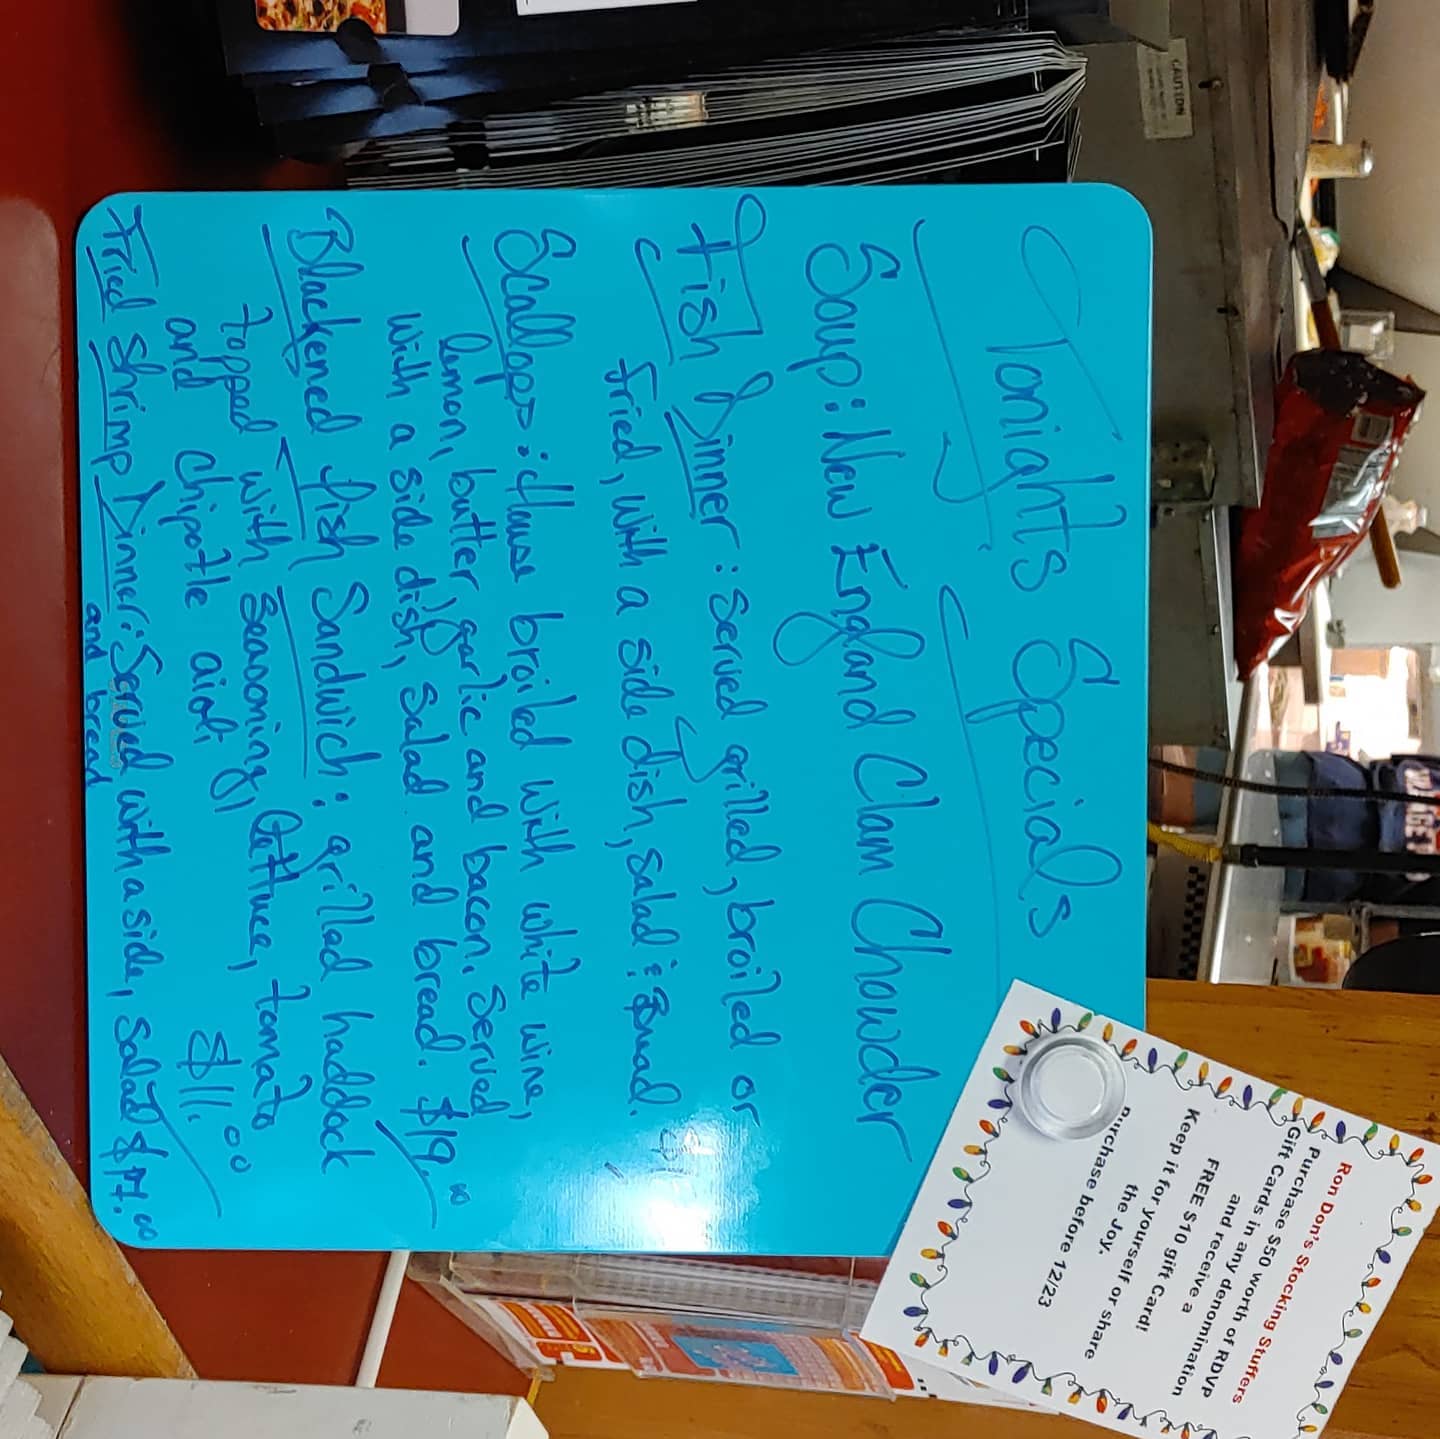 Tonight's Specials
Soup: New England Clam Chowder
Fish Dinner: Served grilled, broiled or
fried, with a side dish, salad & Bread.
Scallops: House broiled with white wine,
lemon, butter, garlic and bacon. Served
with a side dish, Salad and bread. $19.00
Blackened fish Sandwich: grilled haddock
topped with Seasoning, lettuce, tomato
and chipotle aioli $11.00
Fried Shrimp Dinner: Served with a side, Salad
and bread
Ron Don's Stocking Stuffers
Purchase $50 worth of RDVP
Gift Cards in any denomination
and receive a
FREE $10 gift Card!
Keep it for yourself or share
the Joy.
purchase before 12/23
CAUTION